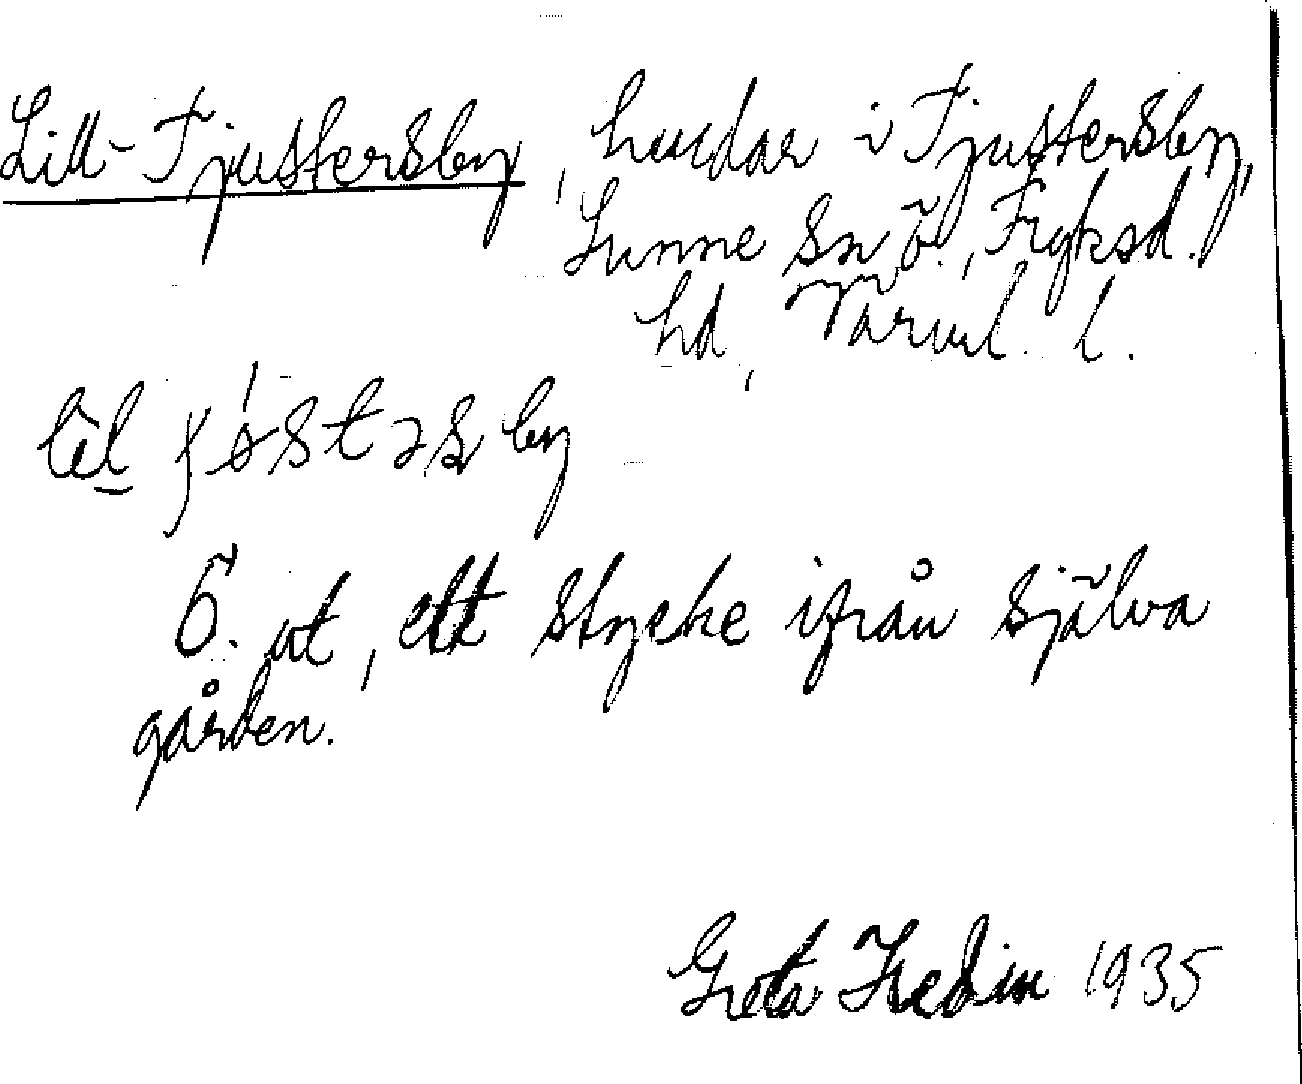 Lill-Fjustersby, husdar i Fjustersby,
Sunne sn Ö., Fryksd.
hd, Värml. l.
by
Ö. ut, ett stycke ifrån själva
gården.
Greta Hedin 1935